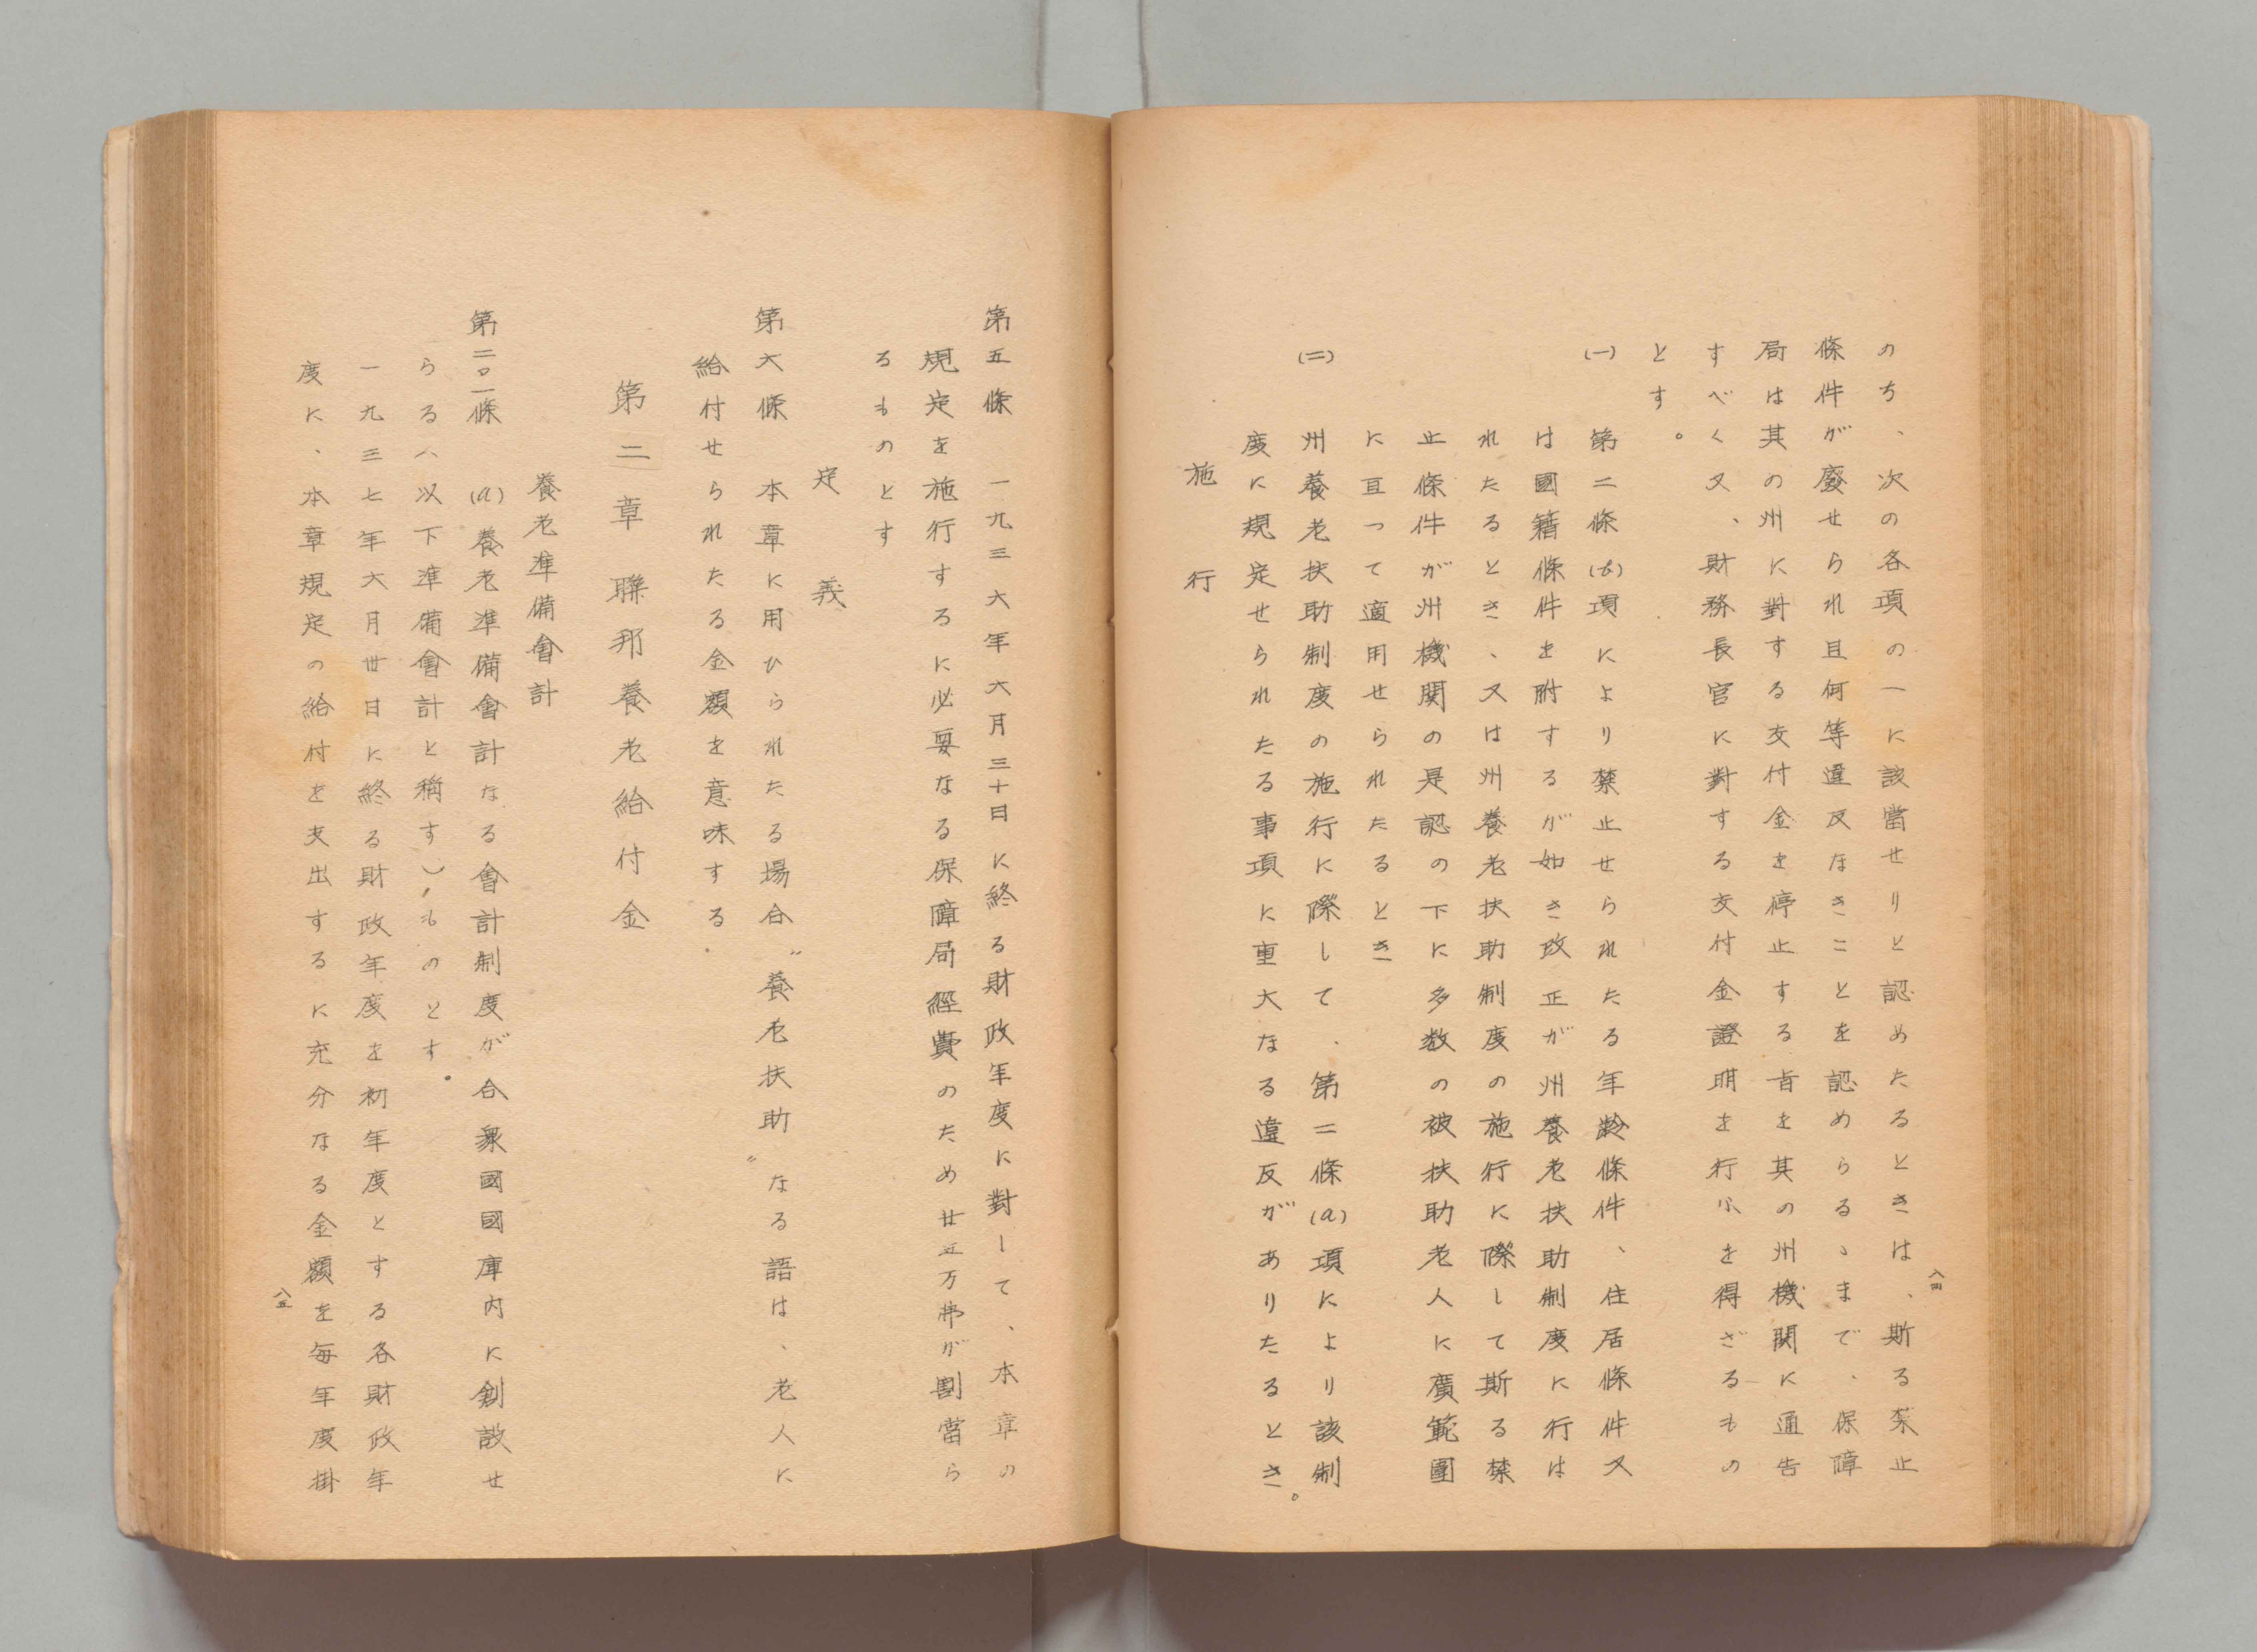 のち、次の各項の一に該當せりと認めたるときは、斯る禁止
條件が廢せられ且何等違反なきことを認めらるゝまで、保障
局は其の州に對する交付金を停止する旨を其の州機関に通告
すべく又、財務長官に對する交付金證明を行ふを得ざるもの
とす。
(一) 第二條(b)項により禁止せられたる年齡條件、住居條件又
は國籍條件を附するが如き改正が州養老扶助制度に行は
れたるとき、又は州養老扶助制度の施行に際して斯る禁
止條件が州機関の是認の下に多数の被扶助老人に廣範圍
に亘って適用せられたるとき
(二) 州養老扶助制度の施行に際して、第二條(a)項により該制
度に規定せられたる事項に重大なる違反がありたるとき。
施行
八四
第五條 一九三六年六月三十日に終る財政年度に對して、本章の
規定を施行するに必要なる保障局經費のため廿五万弗が割當ら
るものとす
定義
第六條 本章に用ひられたる場合〝養老扶助〟なる語は、老人に
給付せられたる金額を意味する.
第二章 聯邦養老給付金
養老準備會計
第二〇一條 (a)養老準備會計なる會計制度が合衆國國庫内に創設せ
らる(以下準備會計と稱す)ものとす。
一九三七年六月卅日に終る財政年度を初年度とする各財政年
度に、本章規定の給付を支出するに充分なる金額を毎年度掛
八五